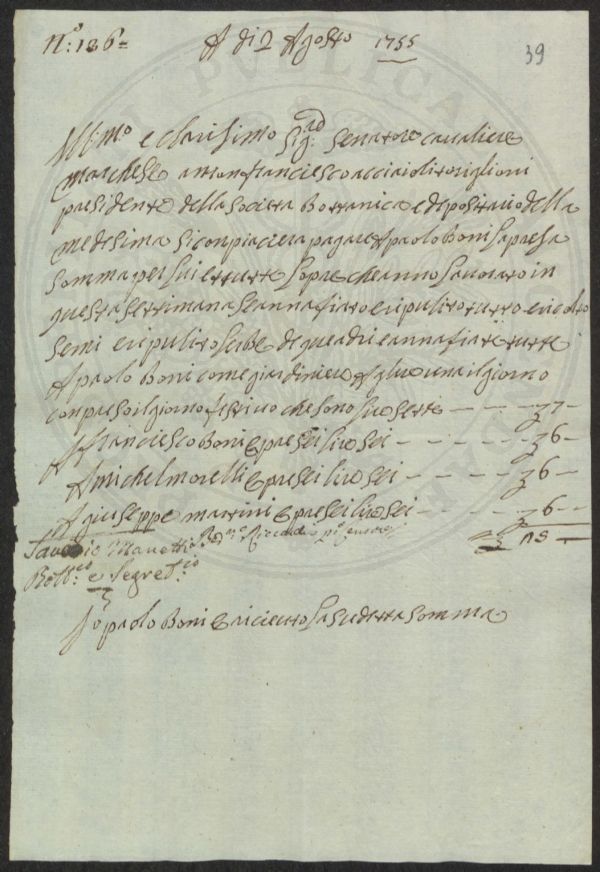 N.º: 126=
A di 2 Agosto 1755
39
Ill:mo e clarisimo Sig:re Senatore cavaliere
Marchese antonfranciesco acciaioli torsiglioni
presidente della Societa Bottanica e depositario della
medesima si conpiaciera pagare A paolo Boni la presa
somma per lui e tutte l opre che anno lavorato in
questa settimana e annafiato e ripulito tutto e ricolto
semi e ripulito l erbe de quadri e annafiate tutte
A paolo Boni come giardiniere A lire una il giorno
conpreso il giorno festivo che sono lire sette — — — 7 —
A franciesco Boni e pre sei lire sei — — — — 6 —
A michel morelli e pre sei lire sei — — — — 6 —
A giuseppe martini e pre sei lire sei — — — — 6 —
Saverio Manetti
Bott:co e Segret:rio
Io paolo Boni o riceuto la sudetta somma